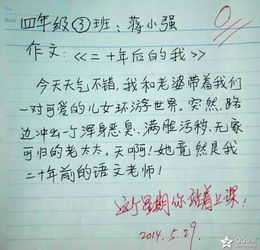 四年级③班:蒋小强
0
作文:《二十年后的我》
今天天气不错,我和老婆带着我们
一对可爱的儿女环游世界。突然,路
边冲出一个浑身恶臭、满脸污秽、无家
可归的老太太。天啊!她竟然是我
二十年前的语文老师!
这个星期你站着上课!
2014.5.29.